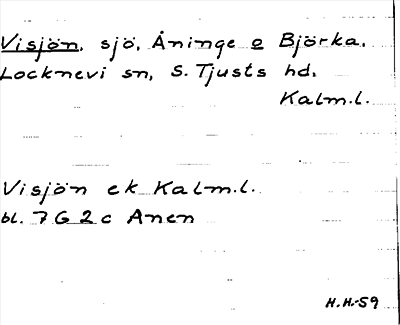 Visjön, sjö, Åninge o Björka,
Locknevi sn, S. Tjusts hd.
Kalm.l.
Visjön ek Kalm.l.
bl. 7 G 2 c Anen
H.H.-59